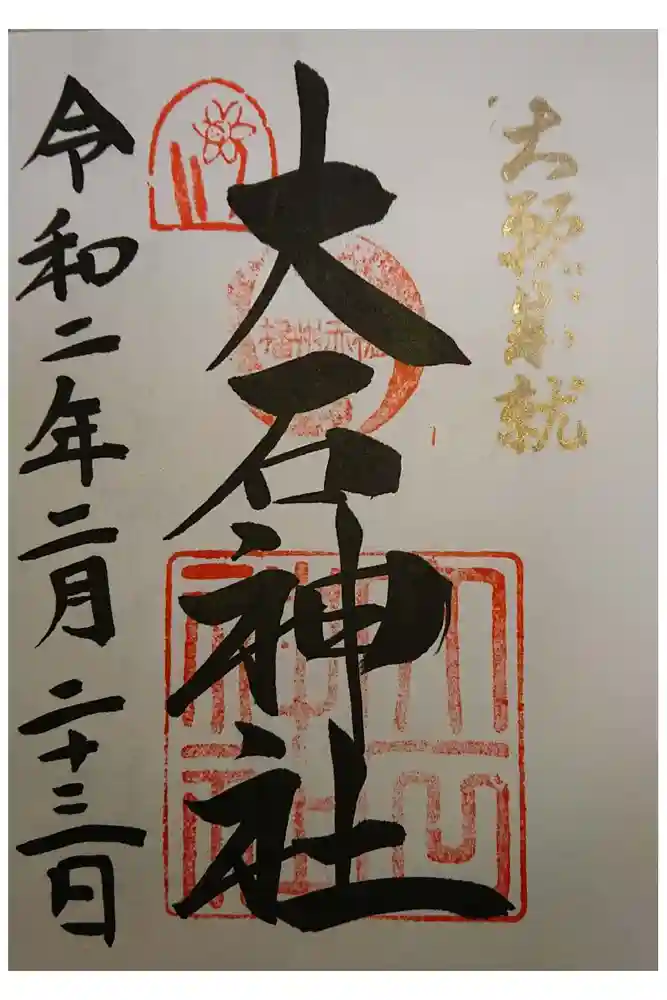 大願成就
大石神社
播州赤穂
令和二年二月二十三日